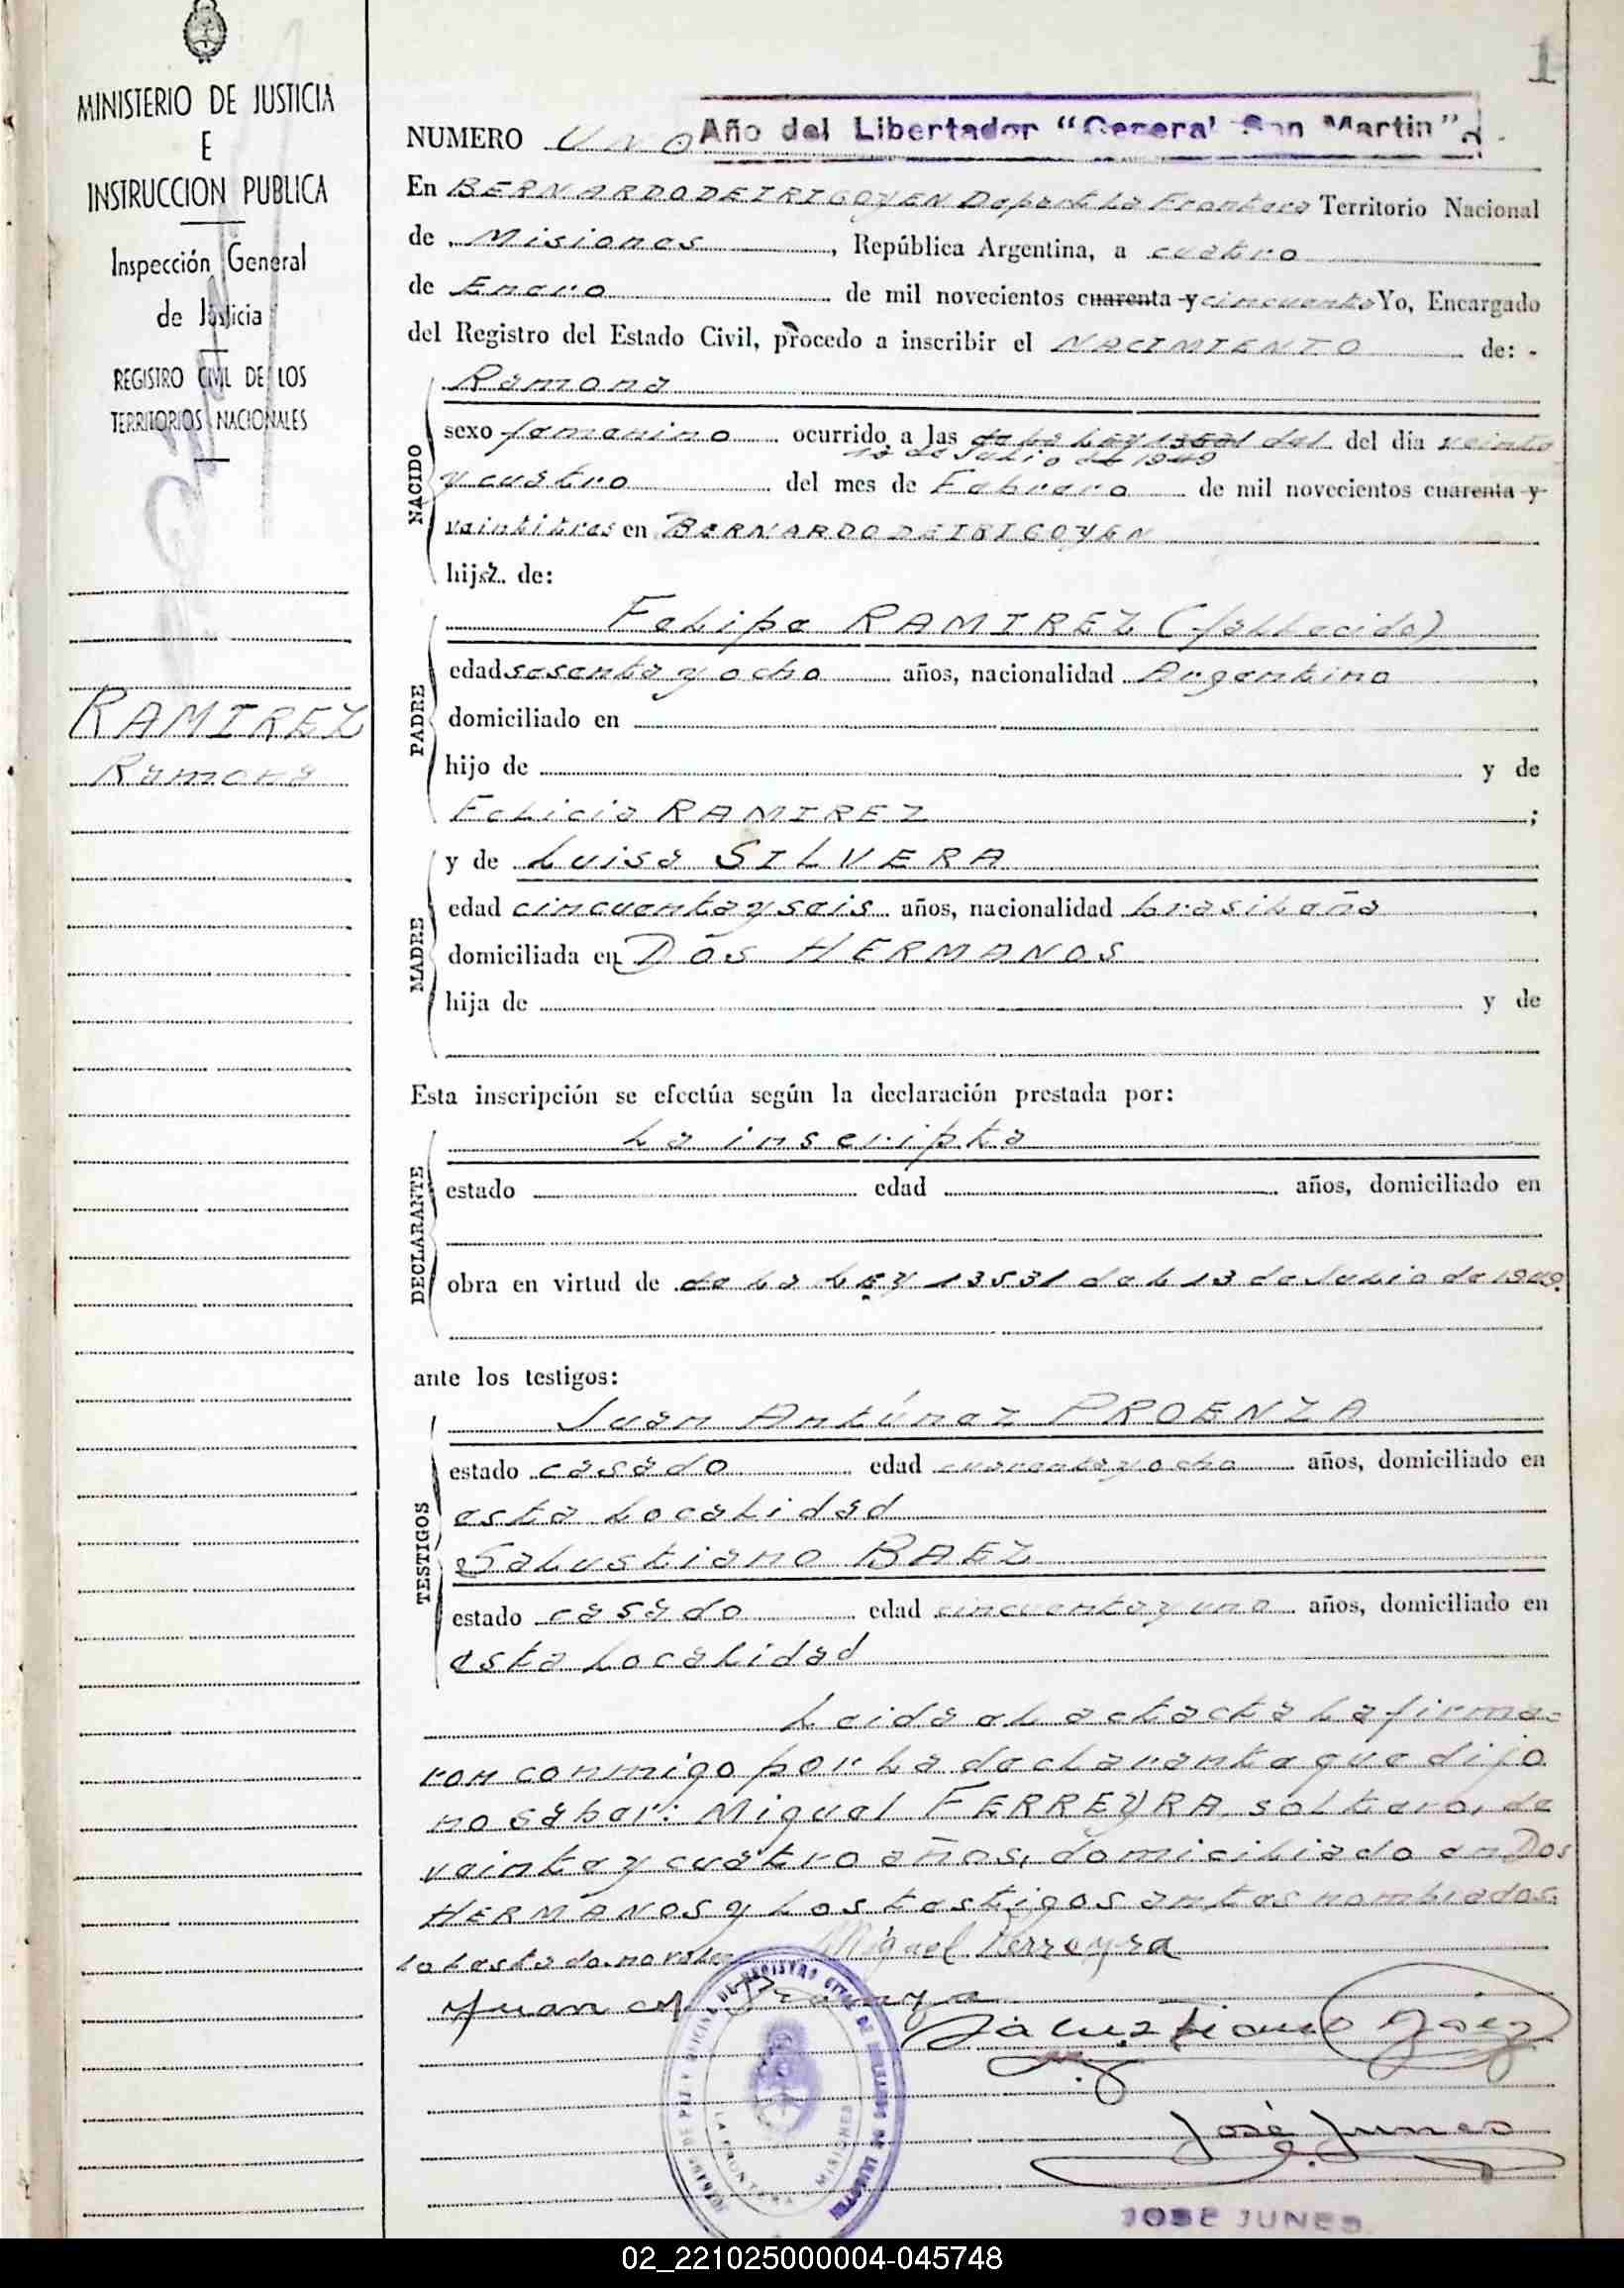 1
MINISTERIO DE JUSTICIA
E
INSTRUCCION PUBLICA
Inspección General
de Justicia
REGISTRO CIVIL DE LOS
TERRITORIOS NACIONALES
RAMIREZ
Ramona
NUMERO UNO Año del Libertador "General San Martin"
En BERNARDO DE IRIGOYEN Depart La Frontera Territorio Nacional
de Misiones, República Argentina, a cuatro
de Enero de mil novecientos cuarenta y cincuenta Yo, Encargado
del Registro del Estado Civil, procedo a inscribir el NACIMIENTO de:
NACIDO
Ramona
sexo femenino ocurrido a las de la Ley 13531 del del día veinte
13 de Julio de 1949
y cuatro del mes de Febrero de mil novecientos cuarenta y
veintitres en BERNARDO DE IRIGOYEN
hija de:
PADRE
Felipe RAMIREZ (fallecido)
edad sesenta y ocho años, nacionalidad Argentino,
domiciliado en
hijo de y de
Felicia RAMIREZ ;
MADRE
y de Luisa SILVERA
edad cincuenta y seis años, nacionalidad brasileña,
domiciliada en DOS HERMANOS
hija de y de
Esta inscripción se efectúa según la declaración prestada por:
DECLARANTE
La inscripta
estado edad años, domiciliado en
obra en virtud de de la LEY 13531 del 13 de Julio de 1949.
ante los testigos:
TESTIGOS
Juan Antúnez PROENZA
estado casado edad cuarenta y ocho años, domiciliado en
esta localidad
Salustiano BAEZ
estado casado edad cincuenta y uno años, domiciliado en
esta localidad
Leida el acta la firma=
ron conmigo por la declarante que dijo
no saber: Miguel FERREYRA, soltero, de
veinte y cuatro años, domiciliado en Dos
HERMANOS y los testigos antes nombrados.
lo testado no vale
Miguel Ferreyra
Juan A.
Salustiano Baez
José Junes
LA FRONTERA MISIONES
JOSE JUNES
02_221025000004-045748